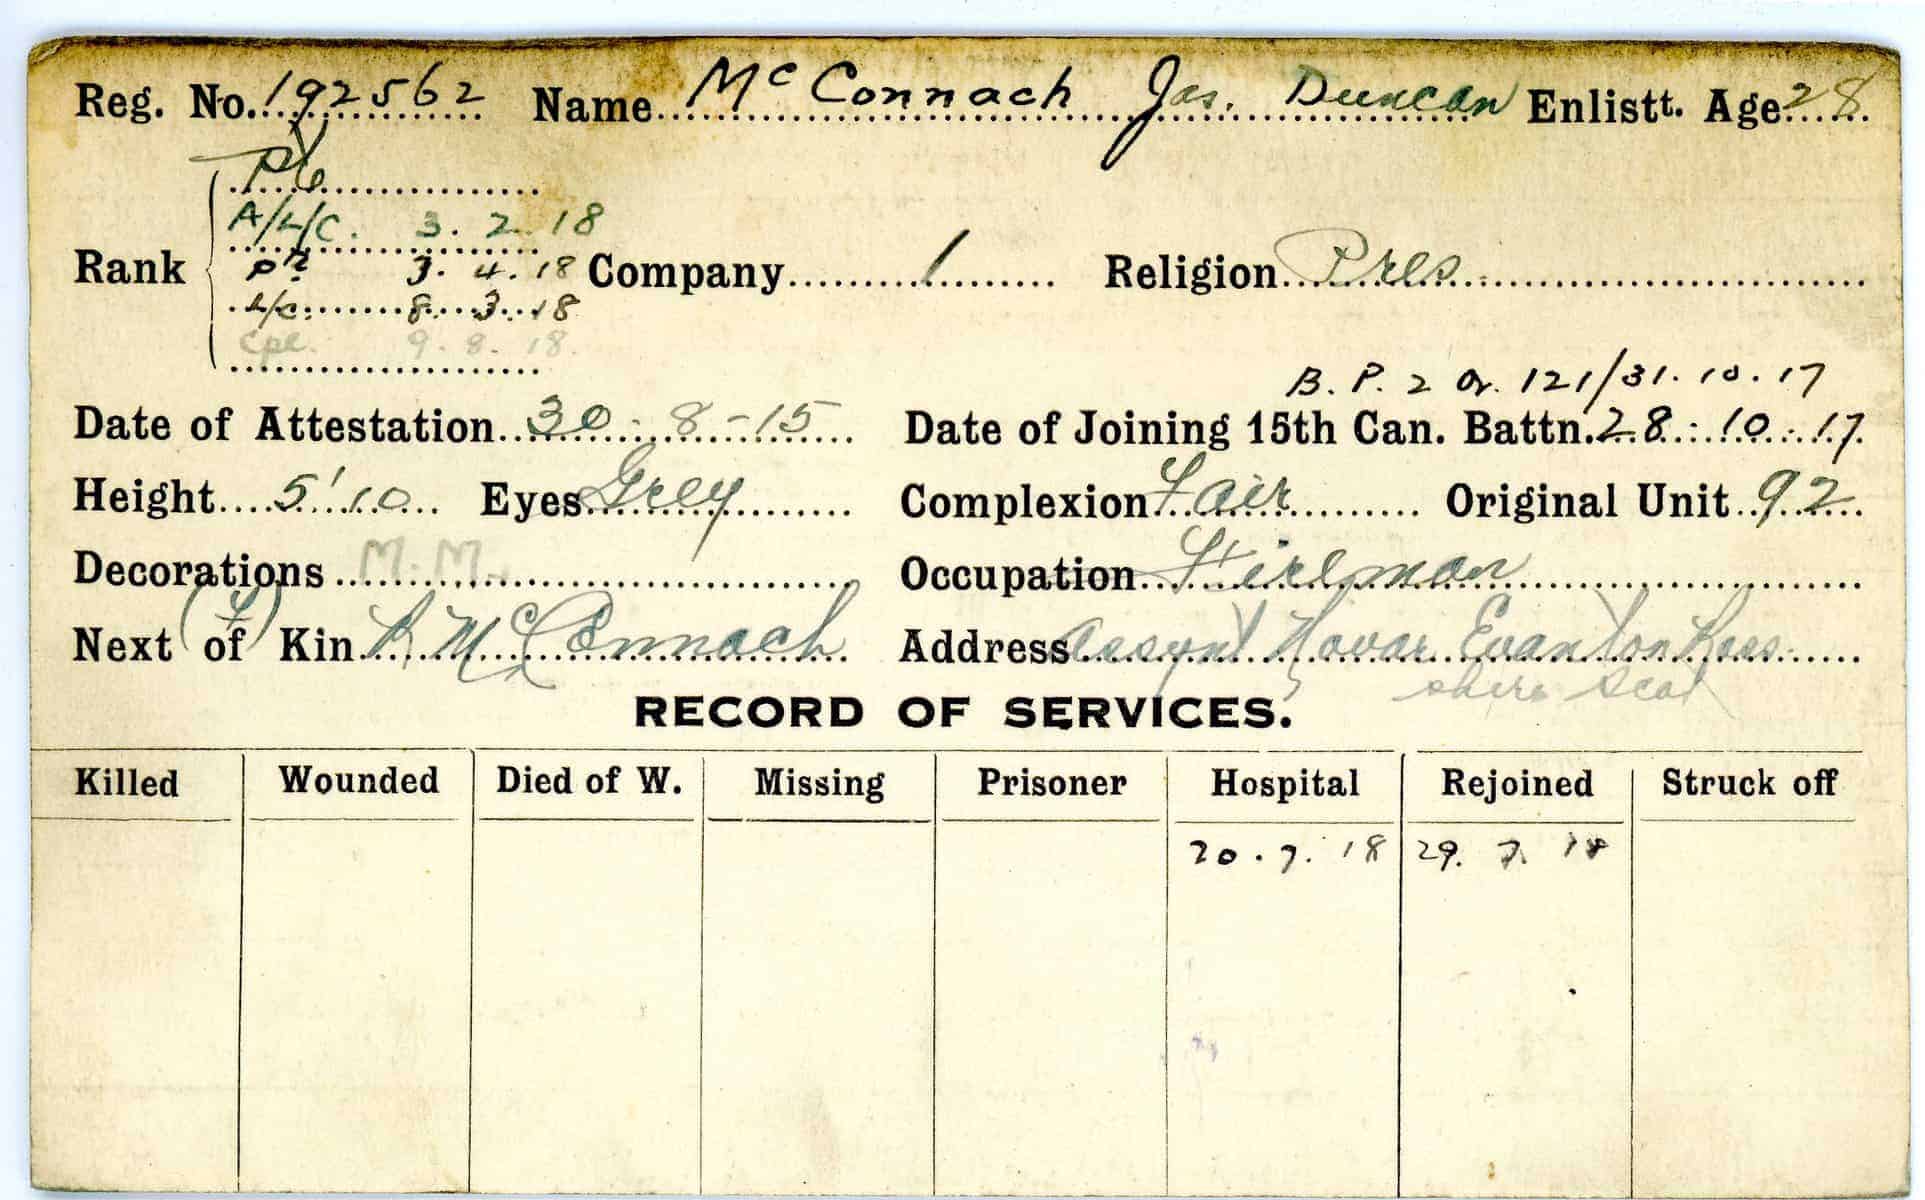 Reg. No. 192562 Name Mc Connach Jas. Duncan Enlistt. Age 28
Pte
A/L/C. 3. 2. 18
Rank Pte 3. 4. 18 Company 1 Religion Pres.
L/C. 8. 3. 18
Cpl. 9. 8. 18.
B. P. 2 Or. 121/31.10.17
Date of Attestation 30-8-15 Date of Joining 15th Can. Battn. 28.10.17.
Height 5'10 Eyes Grey Complexion Fair Original Unit 92
Decorations M.M. Occupation Fireman
(F)
Next of Kin R McConnach Address Assynt Novar Evanton Ross
shire Scot
RECORD OF SERVICES.
Killed Wounded Died of W. Missing Prisoner Hospital Rejoined Struck off
20.7.18 29.7.18